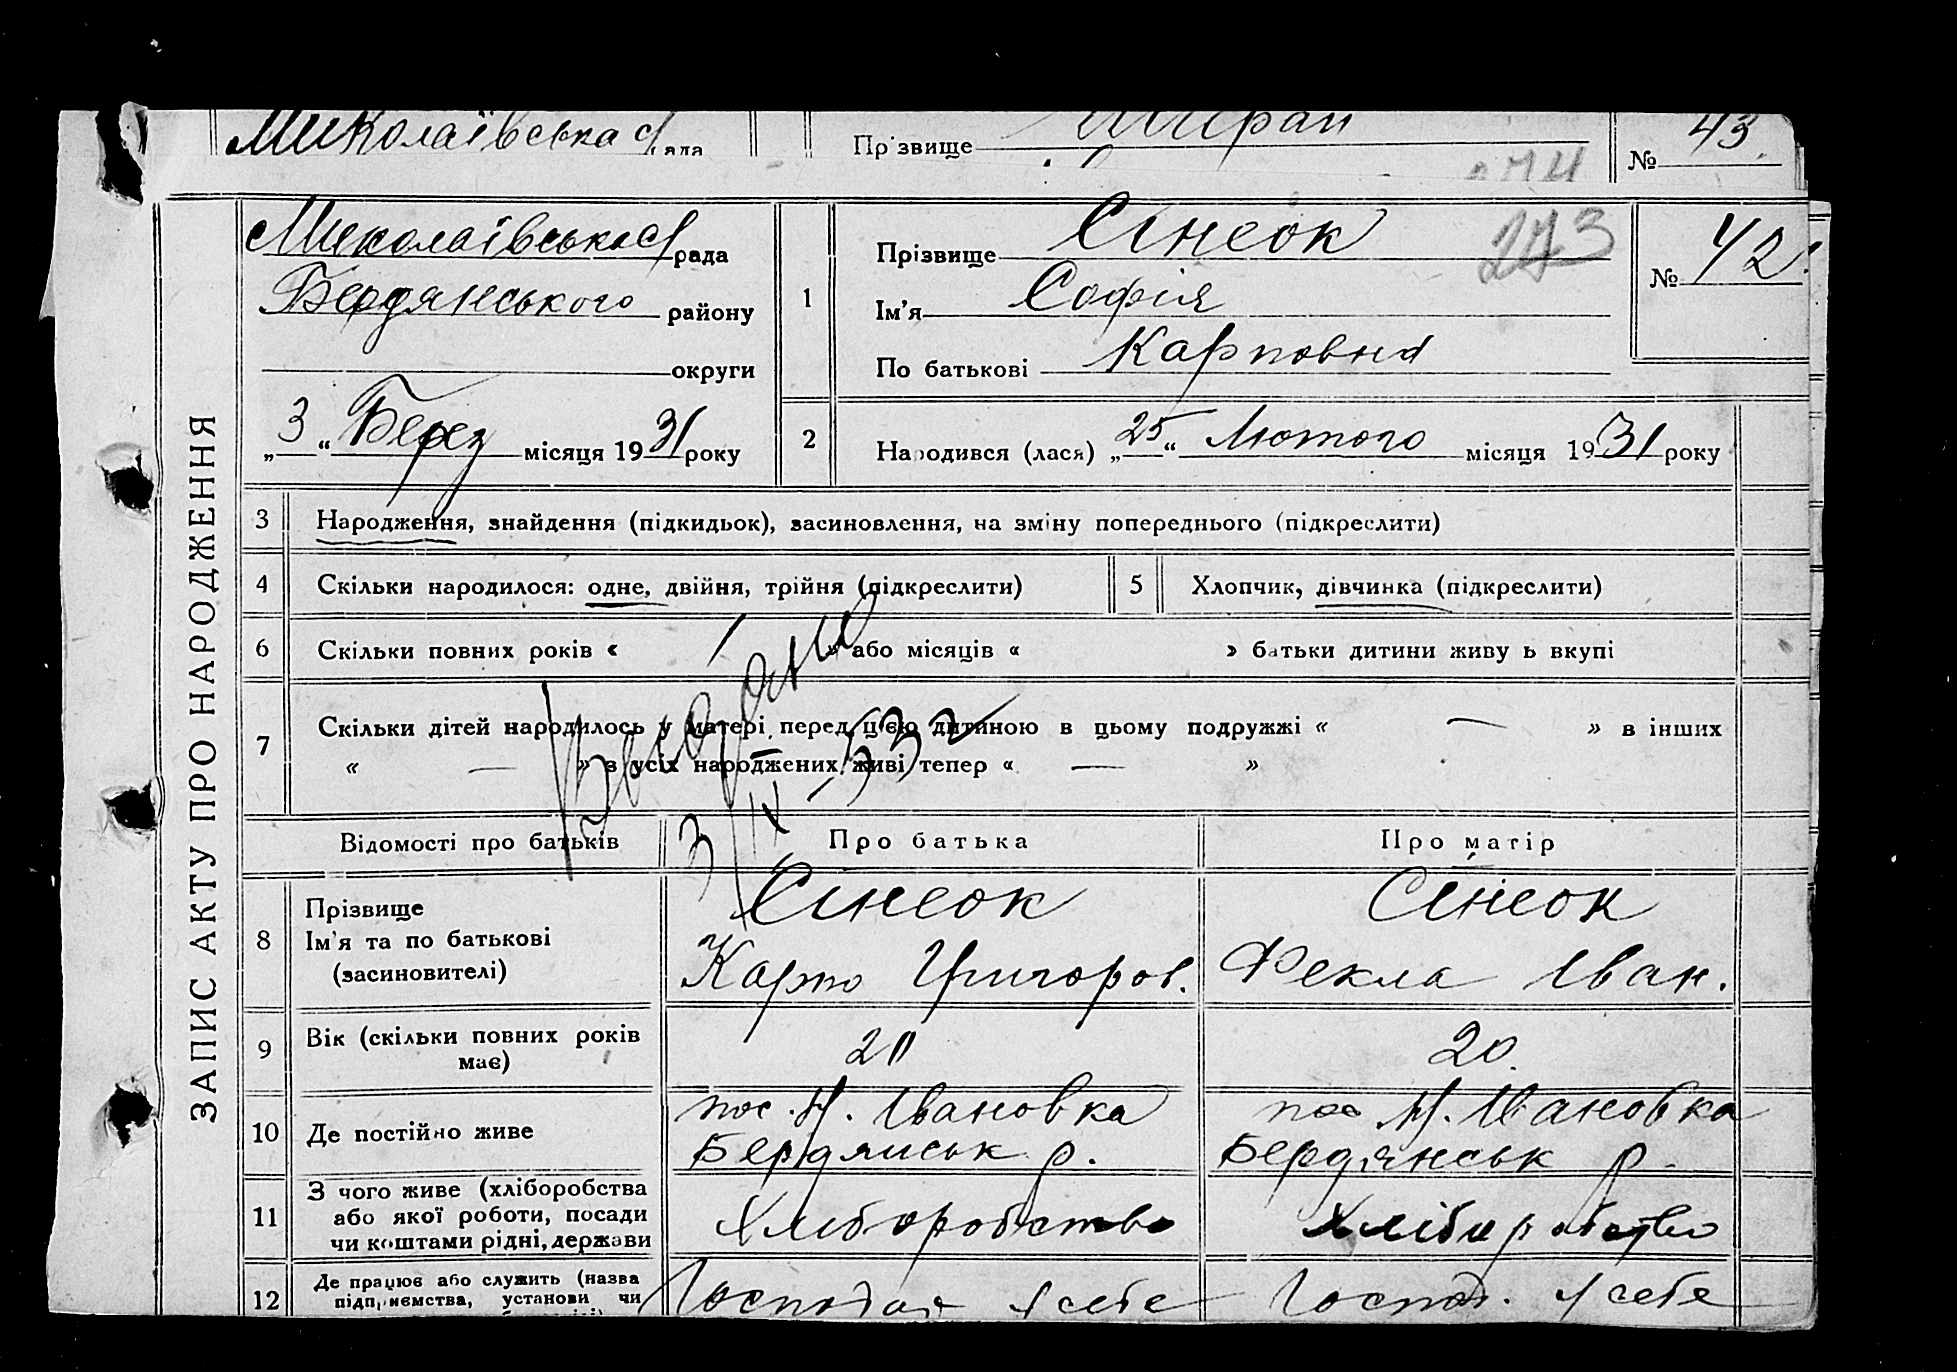 Миколаївська с/рада
Прізвище
№ 43.
274
ЗАПИС АКТУ ПРО НАРОДЖЕННЯ
Миколаївська с/рада
Бердянського району
округи
„3“ Берез місяця 1931 року
1
Прізвище Сінеок
273
Ім'я Софія
По батькові Карповна
№ 42.
2
Народився (лася) „25“ Лютого місяця 1931 року
3 Народження, знайдення (підкидьок), засиновлення, на зміну попереднього (підкреслити)
4 Скільки народилося: одне, двійня, трійня (підкреслити)
5 Хлопчик, дівчинка (підкреслити)
6 Скільки повних років « 1 » або місяців « » батьки дитини живуть вкупі
7 Скільки дітей народилось у матері перед цією дитиною в цьому подружжі « — » в інших
« — » з усіх народжених живі тепер « — »
3/IV-332
Відомості про батьків
Про батька
Про матір
8
Прізвище
Ім'я та по батькові
(засиновителі)
Сінеок
Карпо Григоров.
Сінеок
Фекла Іван.
9
Вік (скільки повних років
має)
20
20.
10 Де постійно живе
пос. Н. Івановка
Бердянськ р.
пос Н. Івановка
Бердянськ р.
11
З чого живе (хліборобства
або якої роботи, посади
чи коштами рідні, держави
Хліборобство
Хліборобство
12
Де працює або служить (назва
підприємства, установи чи
у себе
Господ. у себе